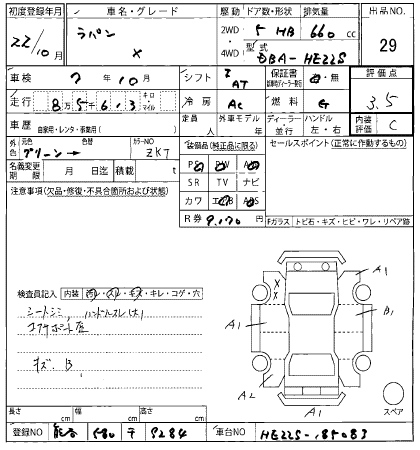 初度登録年月
車名・グレード
駆動
ドア数・形状
排気量
出品NO.
22/10月
ラパン
X
2WD
4WD
5 HB
660 cc
型式
DBA-HE22S
29
車検
7年10月
シフト
AT
保証書
有・無
評価点
走行
8万5千6,3
キロ
マイル
冷房
AC
燃料
G
3.5
車歴
自家用・レンタ・事業用( )
定員
人
外車モデル
年
ディーラー
並行
ハンドル
左・右
内装
評価
C
外色
元色
グリーン
色替
カラーNO
ZKT
装備品(純正品に限る)
セールスポイント(正常に作動するもの)
名義変更
期限
月
日迄
積載
t
PS
PW
AW
SR
TV
ナビ
カワ
エアB
ABS
R券
9,170
円
注意事項(欠品・修復・不具合箇所および状態)
Fガラス
トビ石・キズ・ヒビ・ワレ・リペア跡
検査員記入
内装
汚レ・スレ・キズ・キレ・コゲ・穴
シートシミ
ハンドルスレ(大)
キズ、B
A1
X
X
A1
B1
A2
A1
スペア
長さ
cm
幅
cm
高さ
cm
登録NO
580
9284
車台NO
HE22S-185083